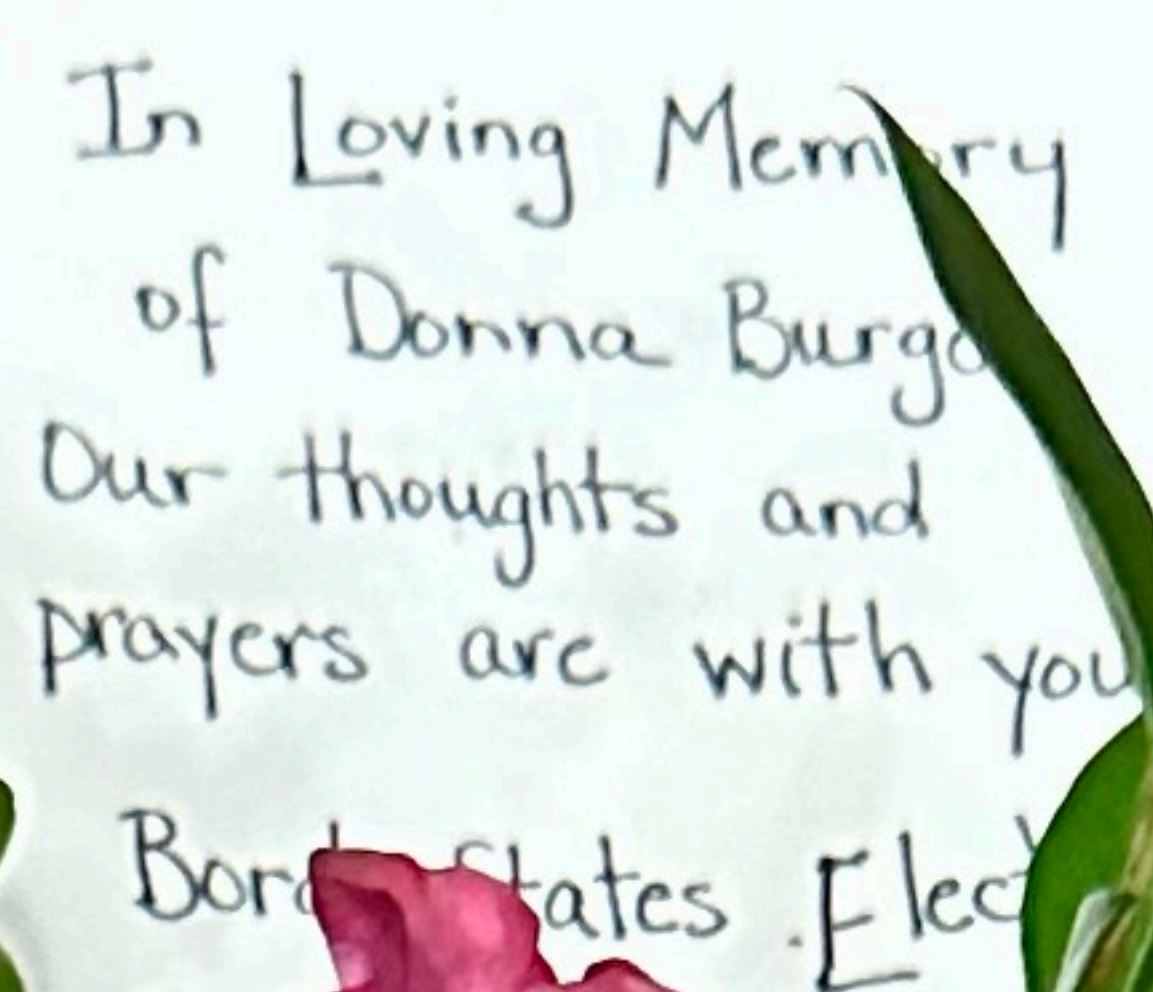 In Loving Memory
of Donna
Our thoughts and
prayers are with you
States